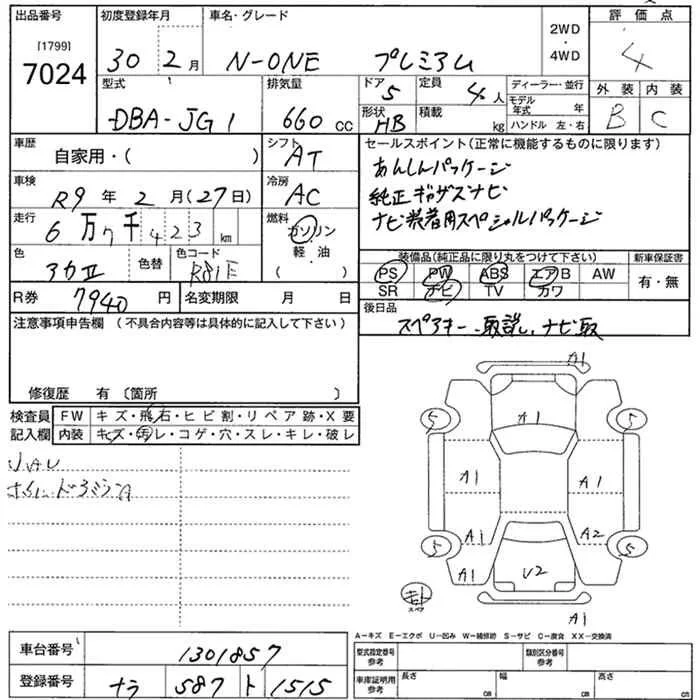 出品番号 初度登録年月 車名・グレード 評価点
[1799]
7024
30 2月 N-ONE プレミアム 2WD・4WD 4
型式 排気量 ドア 定員 ディーラー・並行 外装 内装
DBA-JG1 660cc 5 4人 モデル年式 年 B C
形状 積載 ハンドル 左・右
HB kg
車歴 シフト セールスポイント(正常に機能するものに限ります)
自家用・( ) AT あんしんパッケージ
車検 冷房
R9年2月(27日) AC 純正ギャザズナビ
走行 燃料 ナビ装着用スペシャルパッケージ
6万7千423km ガソリン・軽油・( )
色 色替 色コード 装備品(純正品に限り丸をつけて下さい) 新車保証書
アカII R81E PS PW ABS エアB AW 有・無
SR ナビ TV カワ
R券 7940円 名変期限 月 日 後日品
注意事項申告欄(不具合内容等は具体的に記入して下さい) スペアキー、取説、ナビ取
修復歴 有〔箇所 〕
検査員記入欄 FW キズ・飛石・ヒビ割・リペア跡・X要
内装 キズ・汚レ・コゲ・穴・スレ・キレ・破レ
A1
5 A1 5
A1 A1
A1 A2
5 5
A1 U2
スペア
A1
A−キズ E−エクボ U−凹み W−補修跡 S−サビ C−腐食 XX−交換済
車台番号 1301857 型式指定番号 参考 類別区分番号 参考
登録番号 ナラ 587 ト 1515 車庫証明用 参考 長さ cm 幅 cm 高さ cm